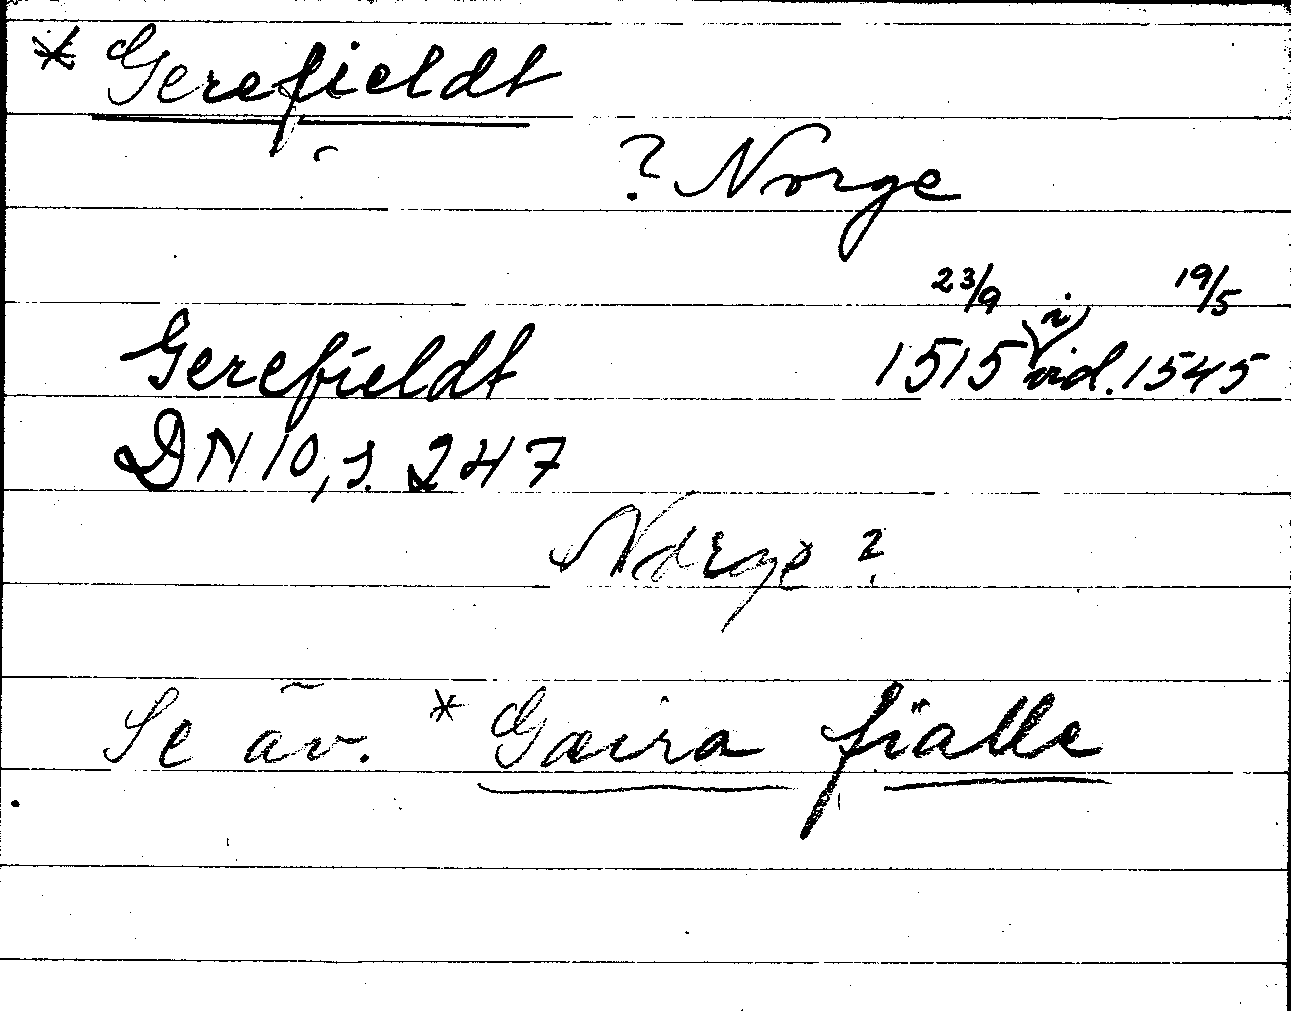 * Gerefieldt
? Norge
Gerefieldt 23/9 1515 i vid. 19/5 1545
DN 10, s. 247
Norge?
Se äv. * Gæira fiälle